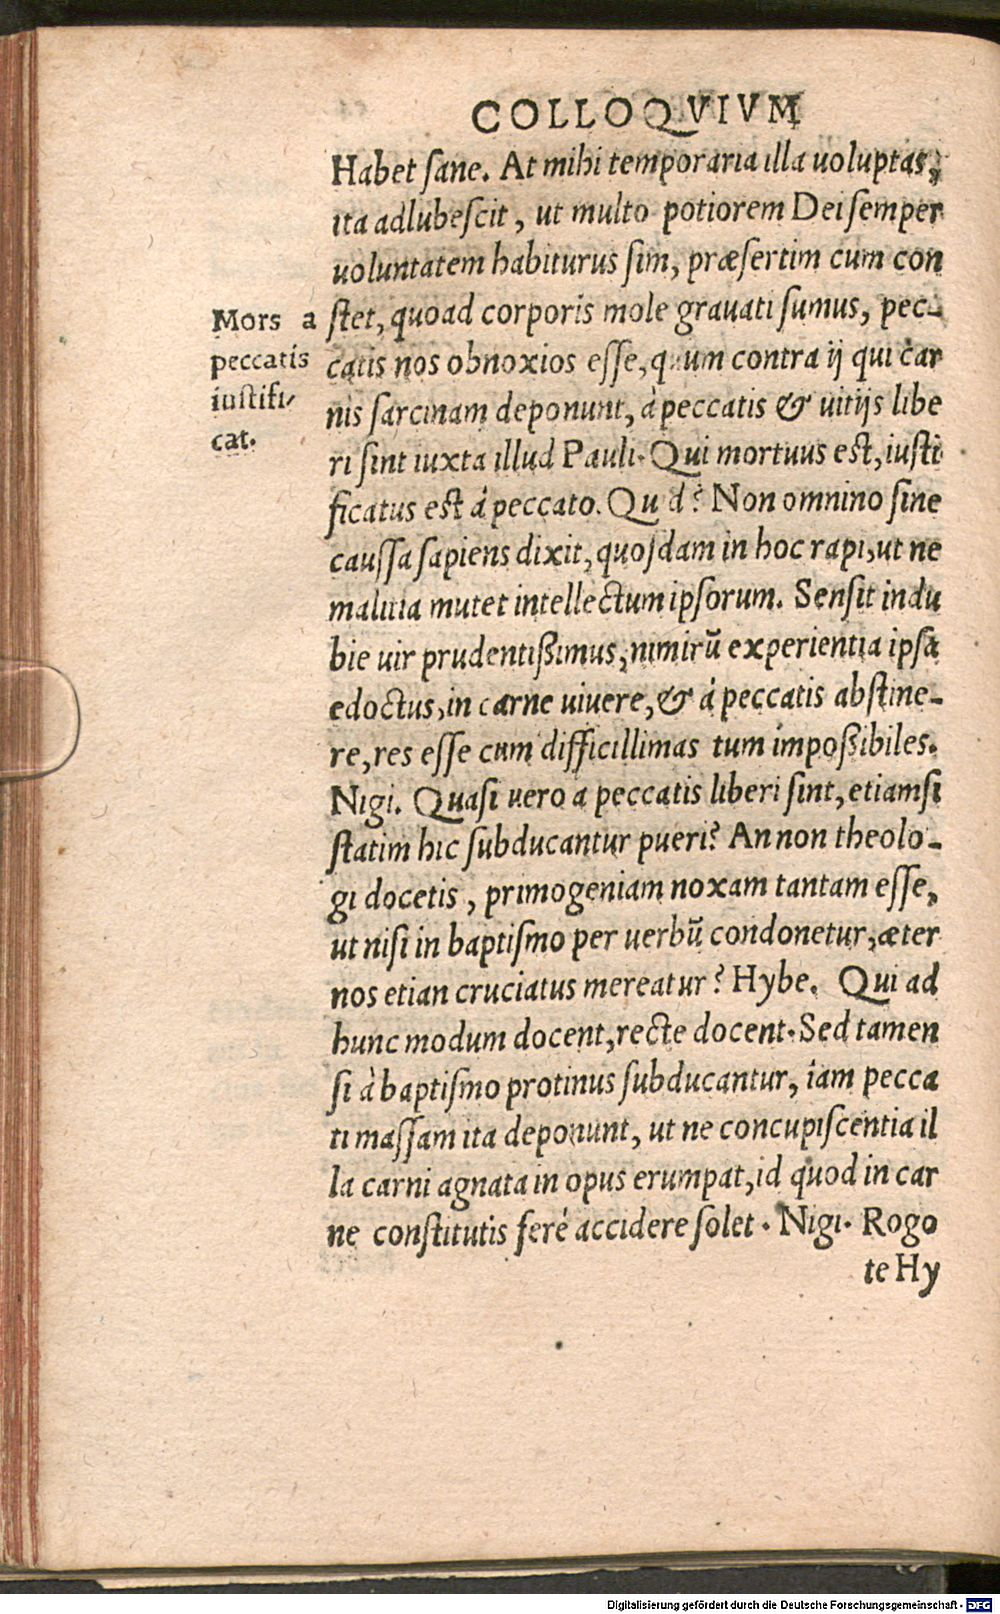 COLLOQVIVM
Habet sane. At mihi temporaria illa uoluptas,
ita adlubescit, ut multo potiorem Dei semper
uoluntatem habiturus sim, præsertim cum con
Mors a
peccatis
iustifi-
cat.
stet, quoad corporis mole grauati sumus, pec-
catis nos obnoxios esse, quum contra ij qui car
nis sarcinam deponunt, à peccatis & uitijs libe
ri sint iuxta illud Pauli. Qui mortuus est, iusti
ficatus est á peccato. Qu d? Non omnino sine
caussa sapiens dixit, quosdam in hoc rapi, ut ne
malitia mutet intellectum ipsorum. Sensit indu
bie uir prudentißimus, nimirū experientia ipsa
edoctus, in carne uiuere, & á peccatis abstine-
re, res esse cum difficillimas tum impoßibiles.
Nigi. Quasi uero a peccatis liberi sint, etiamsi
statim hic subducantur pueri? An non theolo-
gi docetis, primogeniam noxam tantam esse,
ut nisi in baptismo per uerbū condonetur, æter
nos etian cruciatus mereatur? Hybe. Qui ad
hunc modum docent, recte docent. Sed tamen
si à baptismo protinus subducantur, iam pecca
ti massam ita deponunt, ut ne concupiscentia il
la carni agnata in opus erumpat, id quod in car
ne constitutis feré accidere solet. Nigi. Rogo
te Hy
Digitalisierung gefördert durch die Deutsche Forschungsgemeinschaft - DFG